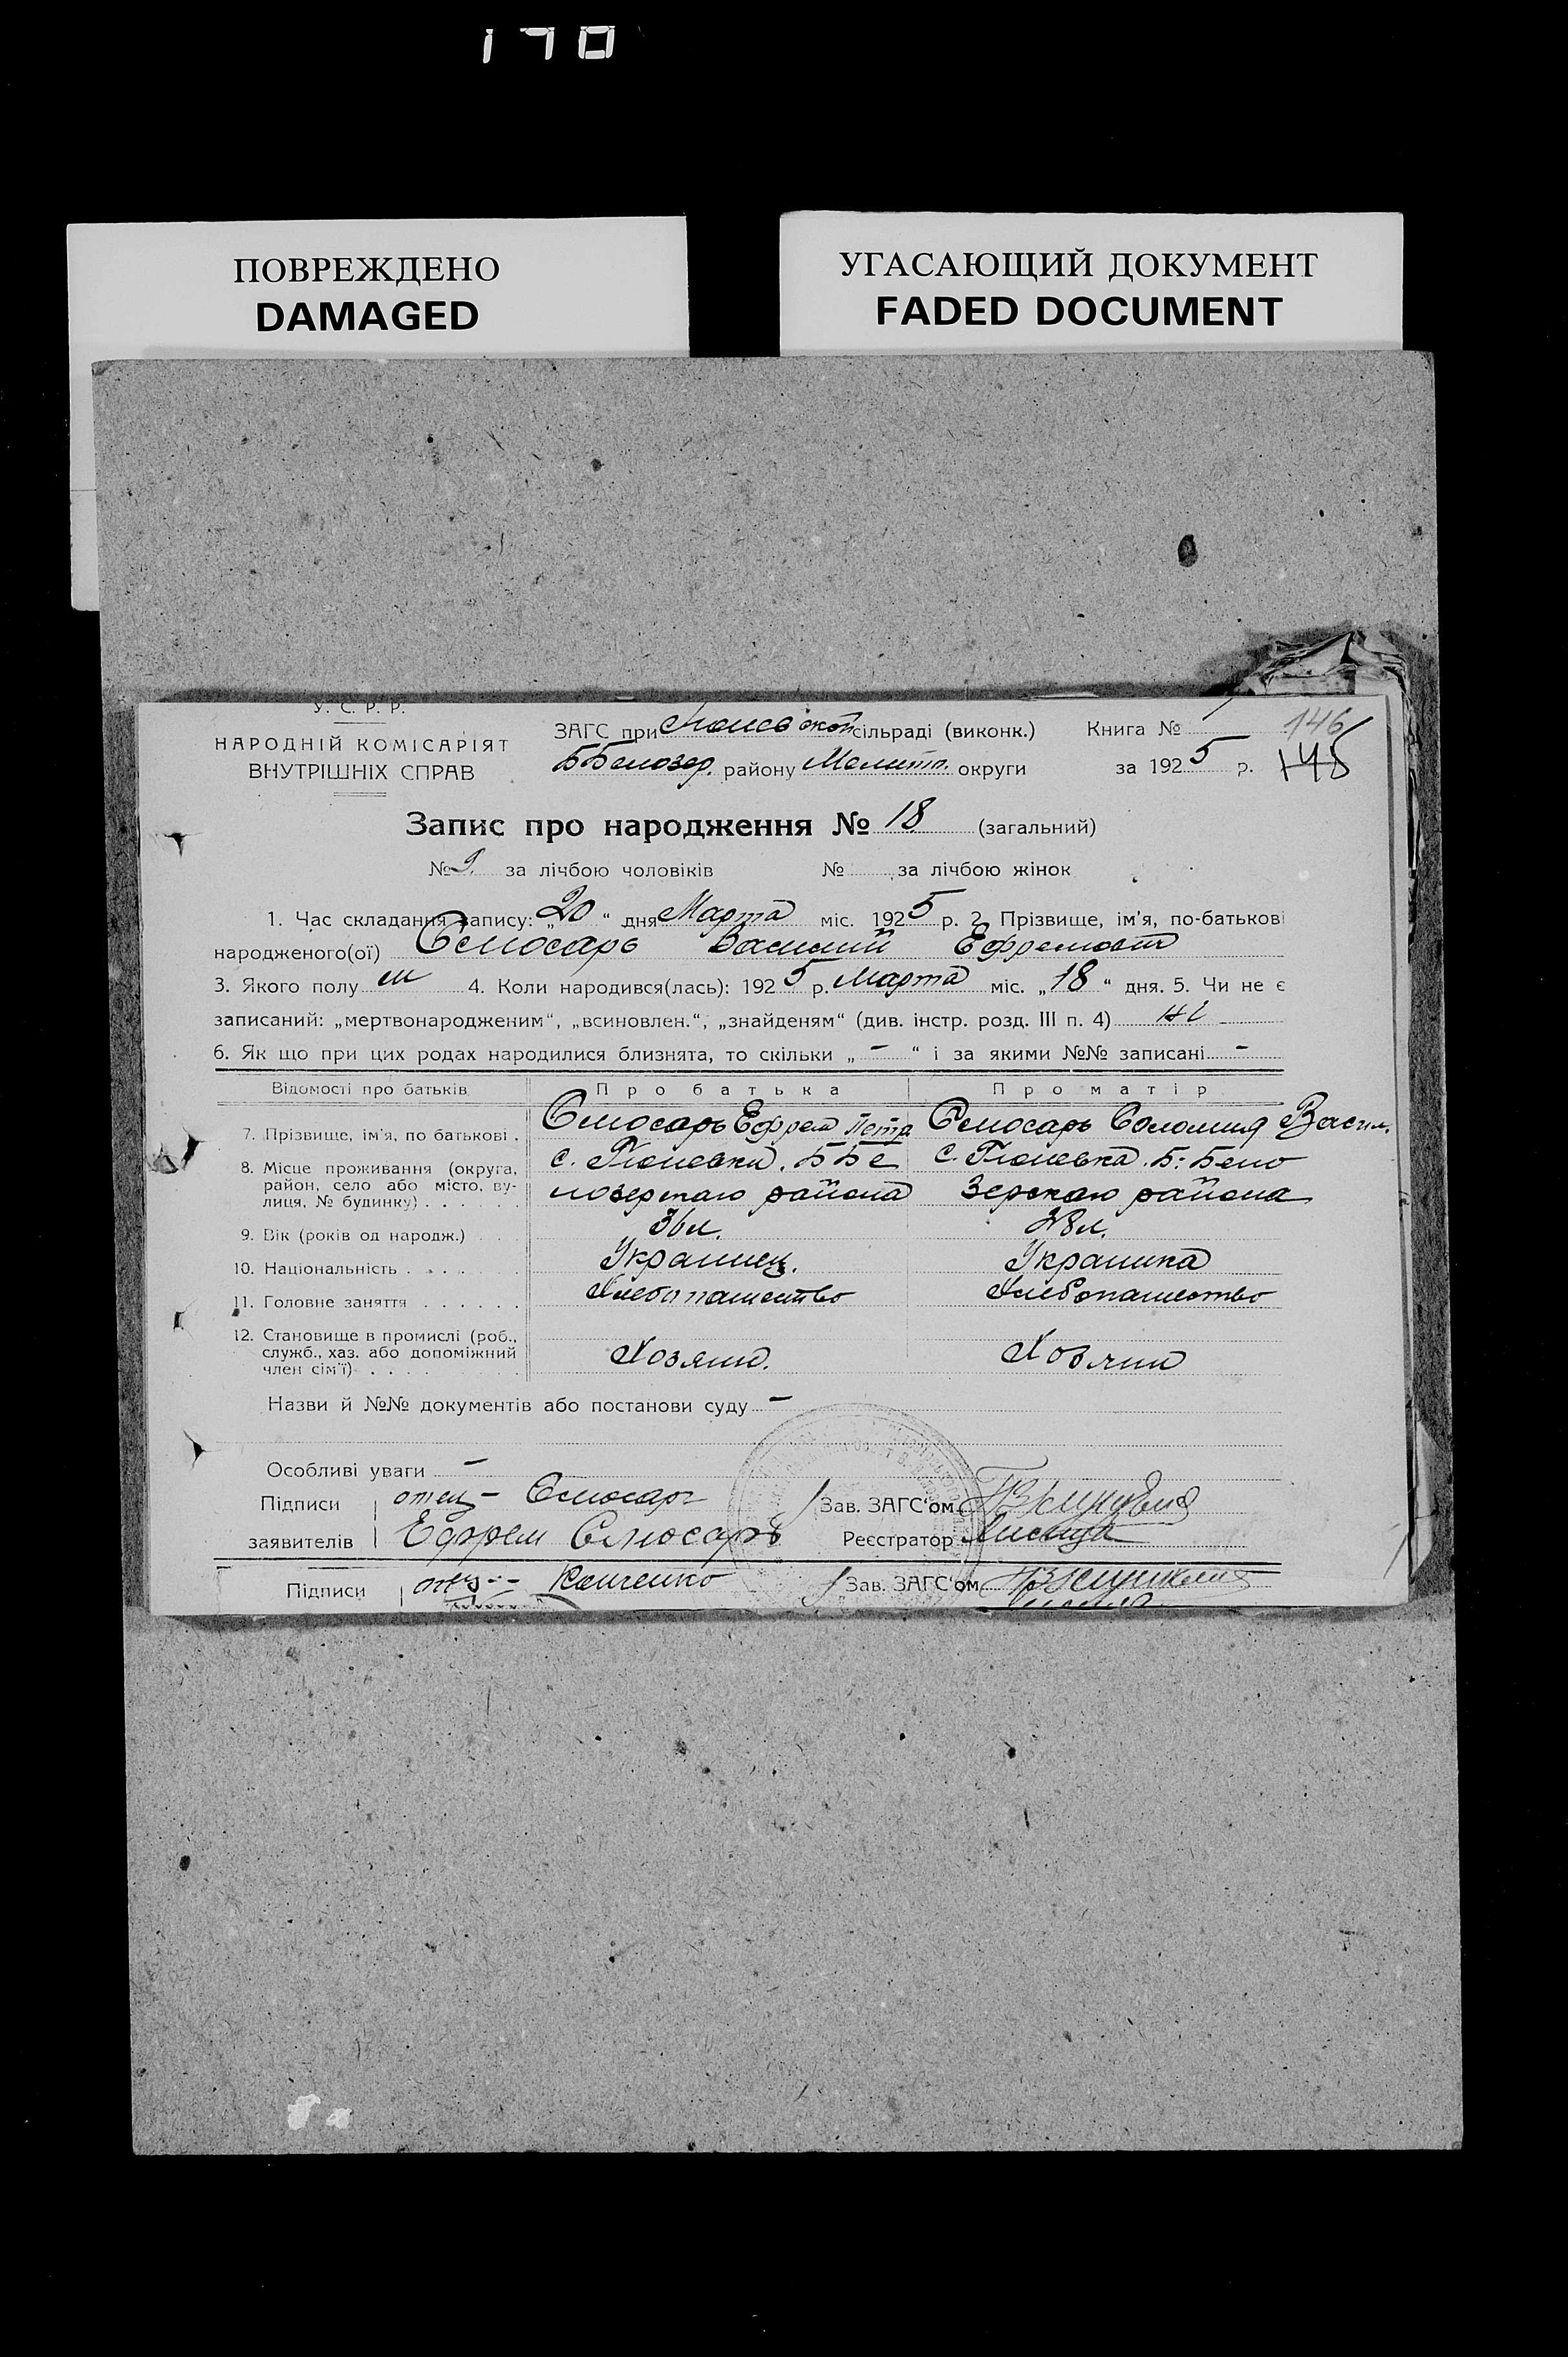 170
ПОВРЕЖДЕНО
DAMAGED
УГАСАЮЩИЙ ДОКУМЕНТ
FADED DOCUMENT
У. С. Р. Р.
НАРОДНІЙ КОМІСАРІЯТ
ВНУТРІШНІХ СПРАВ
ЗАГС при сільраді (виконк.)
ББелозер. району Мелитп. округи
Книга №
за 1925 р.
146
145
Запис про народження № 18 (загальний)
№ 9. за лічбою чоловіків № за лічбою жінок
1. Час складання запису: „20“ дня Марта міс. 1925 р. 2. Прізвище, ім'я, по-батькові
народженого(ої) Слюсарь Василий Ефремович
3. Якого полу м 4. Коли народився(лась): 1925 р. Марта міс. „18“ дня. 5. Чи не є
записаний: „мертвонародженим“, „всиновлен.“, „знайденям“ (див. інстр. розд. III п. 4) не
6. Як що при цих родах народилися близнята, то скільки „-“ і за якими №№ записані -
Відомості про батьків Про батька Про матір
7. Прізвище, ім'я, по батькові . Слюсарь Ефрем Петр Слюсарь Соломия Васил.
8. Місце проживання (округа, район, село або місто, вулиця, № будинку) . . . . . . с. ББелозерского района с. Б: Белозерского района
9. Вік (років од народж.) . . 36 л. 28 л.
10. Національність . . . . . . Украинец. Украинка
11. Головне заняття . . . . . . Хлебопашество Хлебопашество
12. Становище в промислі (роб., служб., хаз. або допоміжний член сім'ї) . . . . Хозяин. Хозяин
Назви й №№ документів або постанови суду -
Особливі уваги -
Підписи заявителів отец - Слюсарь
Ефрем Слюсарь
Зав. ЗАГС'ом
Реєстратор
Підписи отец - Зав. ЗАГС'ом